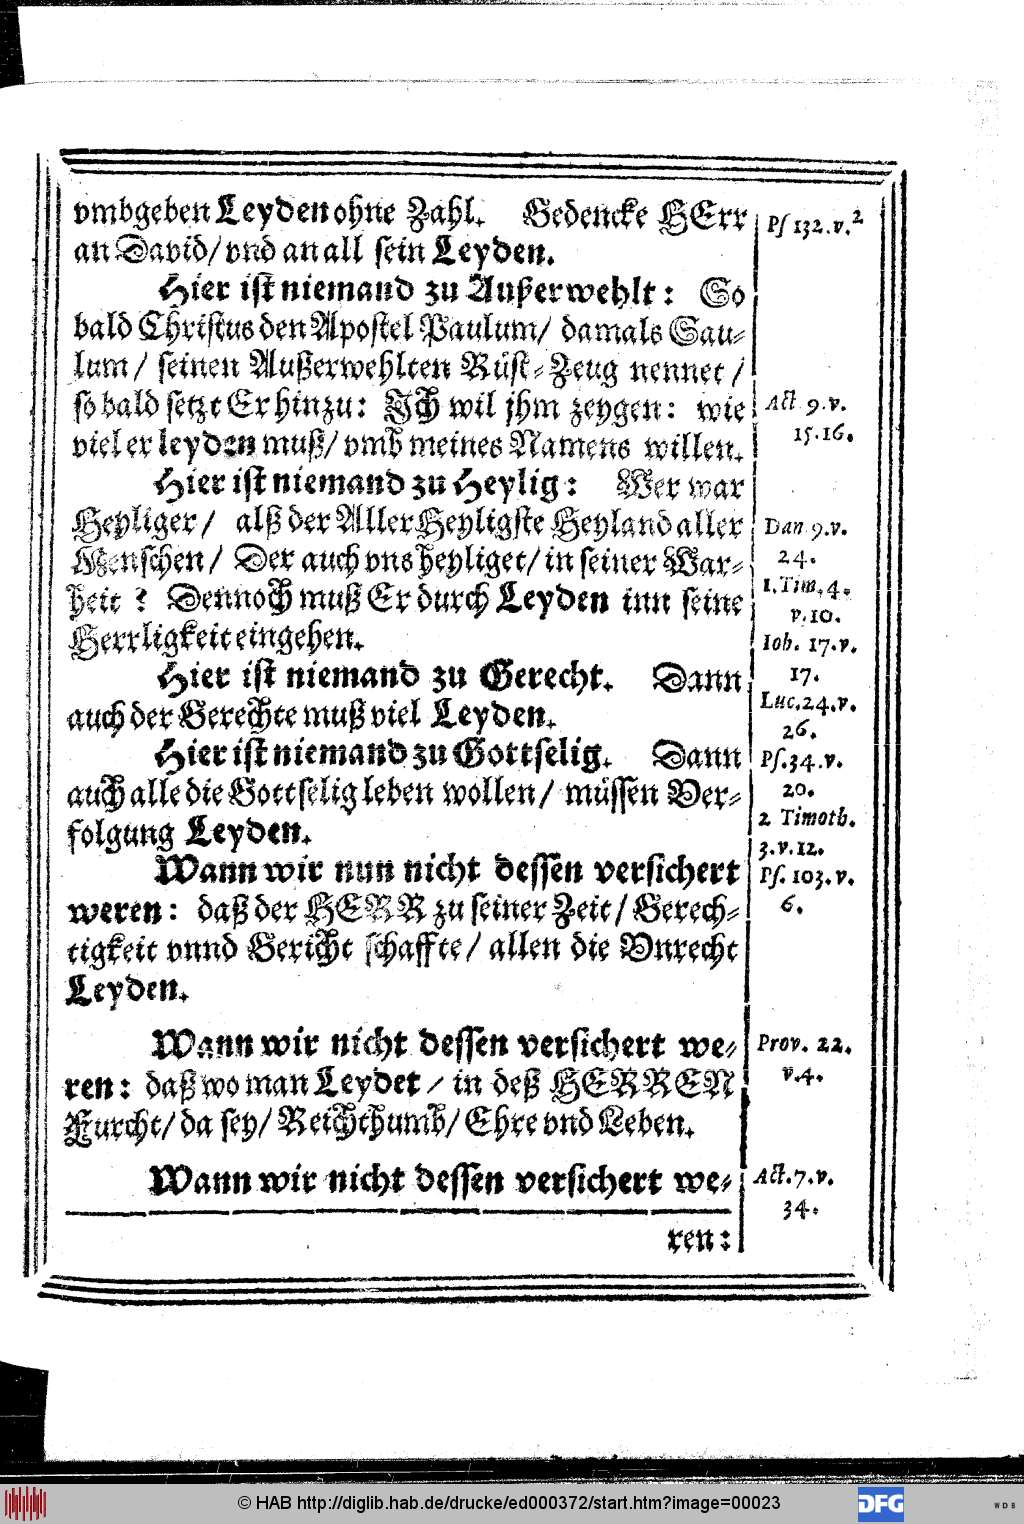 vmbgeben Leyden ohne Zahl. Gedencke HErr
an David/ vnd an all sein Leyden.
Hier ist niemand zu Außerwehlt: So
bald Christus den Apostel Paulum/ damals Sau-
lum/ seinen Außerwehlten Rüst-Zeug nennet/
so bald setzt Er hinzu: Jch wil jhm zeygen: wie
viel er leyden muß/ vmb meines Namens willen.
Hier ist niemand zu Heylig: Wer war
Heyliger/ alß der AllerHeyligste Heyland aller
Menschen/ Der auch vns heyliget/ in seiner War-
heit? Dennoch muß Er durch Leyden inn seine
Herrligkeit eingehen.
Hier ist niemand zu Gerecht. Dann
auch der Gerechte muß viel Leyden.
Hier ist niemand zu Gottselig. Dann
auch alle die Gottselig leben wollen/ müssen Ver-
folgung Leyden.
Wann wir nun nicht dessen versichert
weren: daß der HERR zu seiner Zeit/ Gerech-
tigkeit vnnd Gericht schaffte/ allen die Vnrecht
Leyden.
Wann wir nicht dessen versichert we-
ren: daß wo man Leydet/ in deß HERREN
Furcht/ da sey/ Reichthumb/ Ehre vnd Leben.
Wann wir nicht dessen versichert we-
ren:
Ps 132. v. 2
Act 9. v.
15. 16.
Dan 9. v.
24.
1. Tim. 4.
v. 10.
Ioh. 17. v.
17.
Luc. 24. v.
26.
Ps. 34. v.
20.
2 Timoth.
3. v. 12.
Ps. 103. v.
6.
Prov. 22.
v. 4.
Act. 7. v.
34.
© HAB http://diglib.hab.de/drucke/ed000372/start.htm?image=00023
DFG
WDB